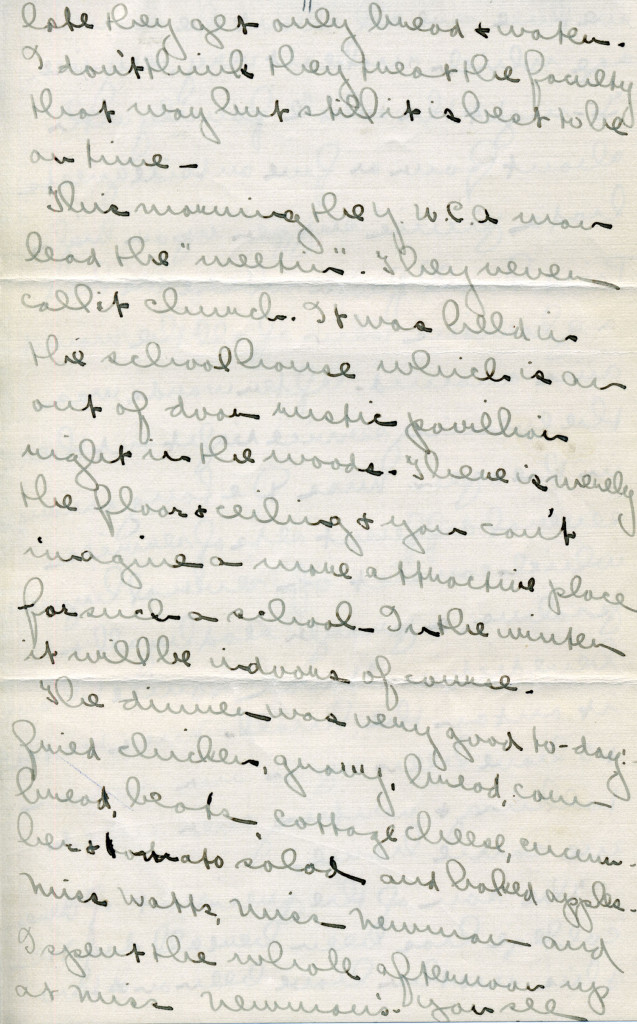 late they get only bread & water.
I don't think they treat the faculty
that way but still it is best to be
on time –
This morning the Y.W.C.A man
lead the "meetin". They never
call it church. It was held in
the school house which is an
out of door rustic pavillion
right in the woods. There is merely
the floor & ceiling & you can't
imagine a more attractive place
for such a school – In the winter
it will be indoors of course.
The dinner was very good to-day:-
fried chicken, gravy, bread, corn
bread, beats, cottage cheese, cucum-
ber & tomato salad and baked apples.
Miss Watts, Miss Newman and
I spent the whole afternoon up
at Miss Newman's. You see